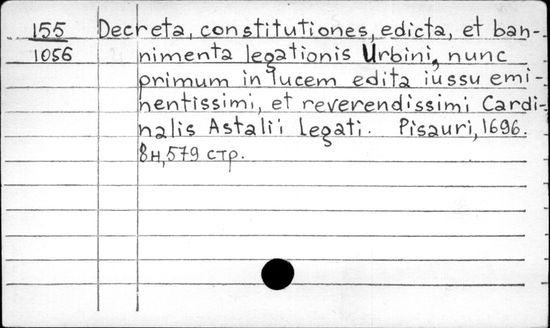 155 Decreta, constitutiones, edicta, et ban-
1056 nimenta legationis Urbini, nunc
primum in lucem edita iussu emi-
nentissimi, et reverendissimi Cardi-
nalis Astalii Legati. Pisauri, 1696.
8н, 579 стр.